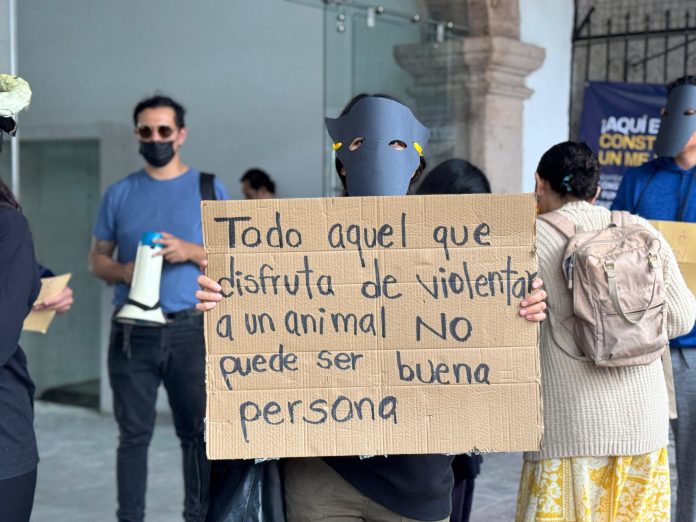 Todo aquel que
disfruta de violentar
a un animal NO
puede ser buena
persona
¡AQUÍ E
CONST
UN ME